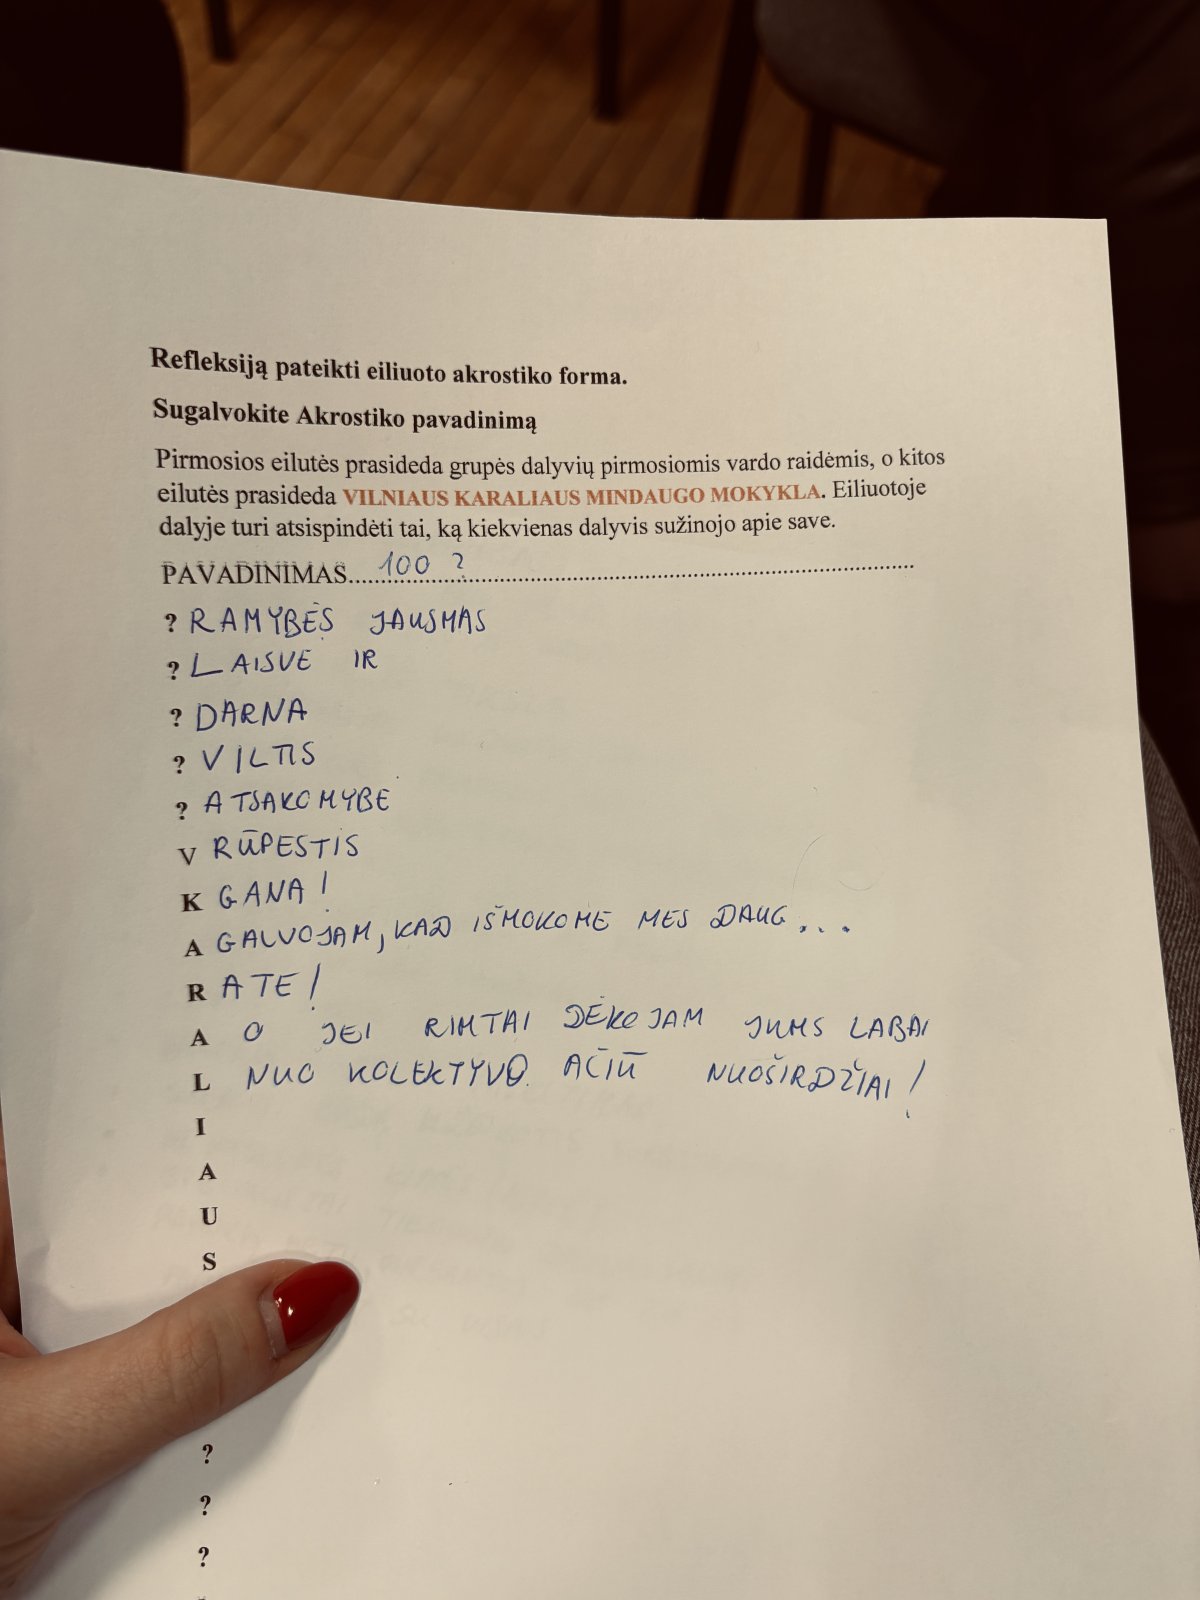 Refleksiją pateikti eiliuoto akrostiko forma.
Sugalvokite Akrostiko pavadinimą
Pirmosios eilutės prasideda grupės dalyvių pirmosiomis vardo raidėmis, o kitos
eilutės prasideda VILNIAUS KARALIAUS MINDAUGO MOKYKLA. Eiliuotoje
dalyje turi atsispindėti tai, ką kiekvienas dalyvis sužinojo apie save.
PAVADINIMAS.......100 ?.......
? RAMYBĖS JAUSMAS
? LAISVE IR
? DARNA
? VILTIS
? ATSAKOMYBE
V RŪPESTIS
K GANA!
A GALVOJAM, KAD IŠMOKOME MES DAUG...
R ATE!
A O JEI RIMTAI DĖKOJAM JUMS LABAI
L NUO KOLEKTYVO AČIŪ NUOŠIRDŽIAI!
I
A
U
S
?
?
?